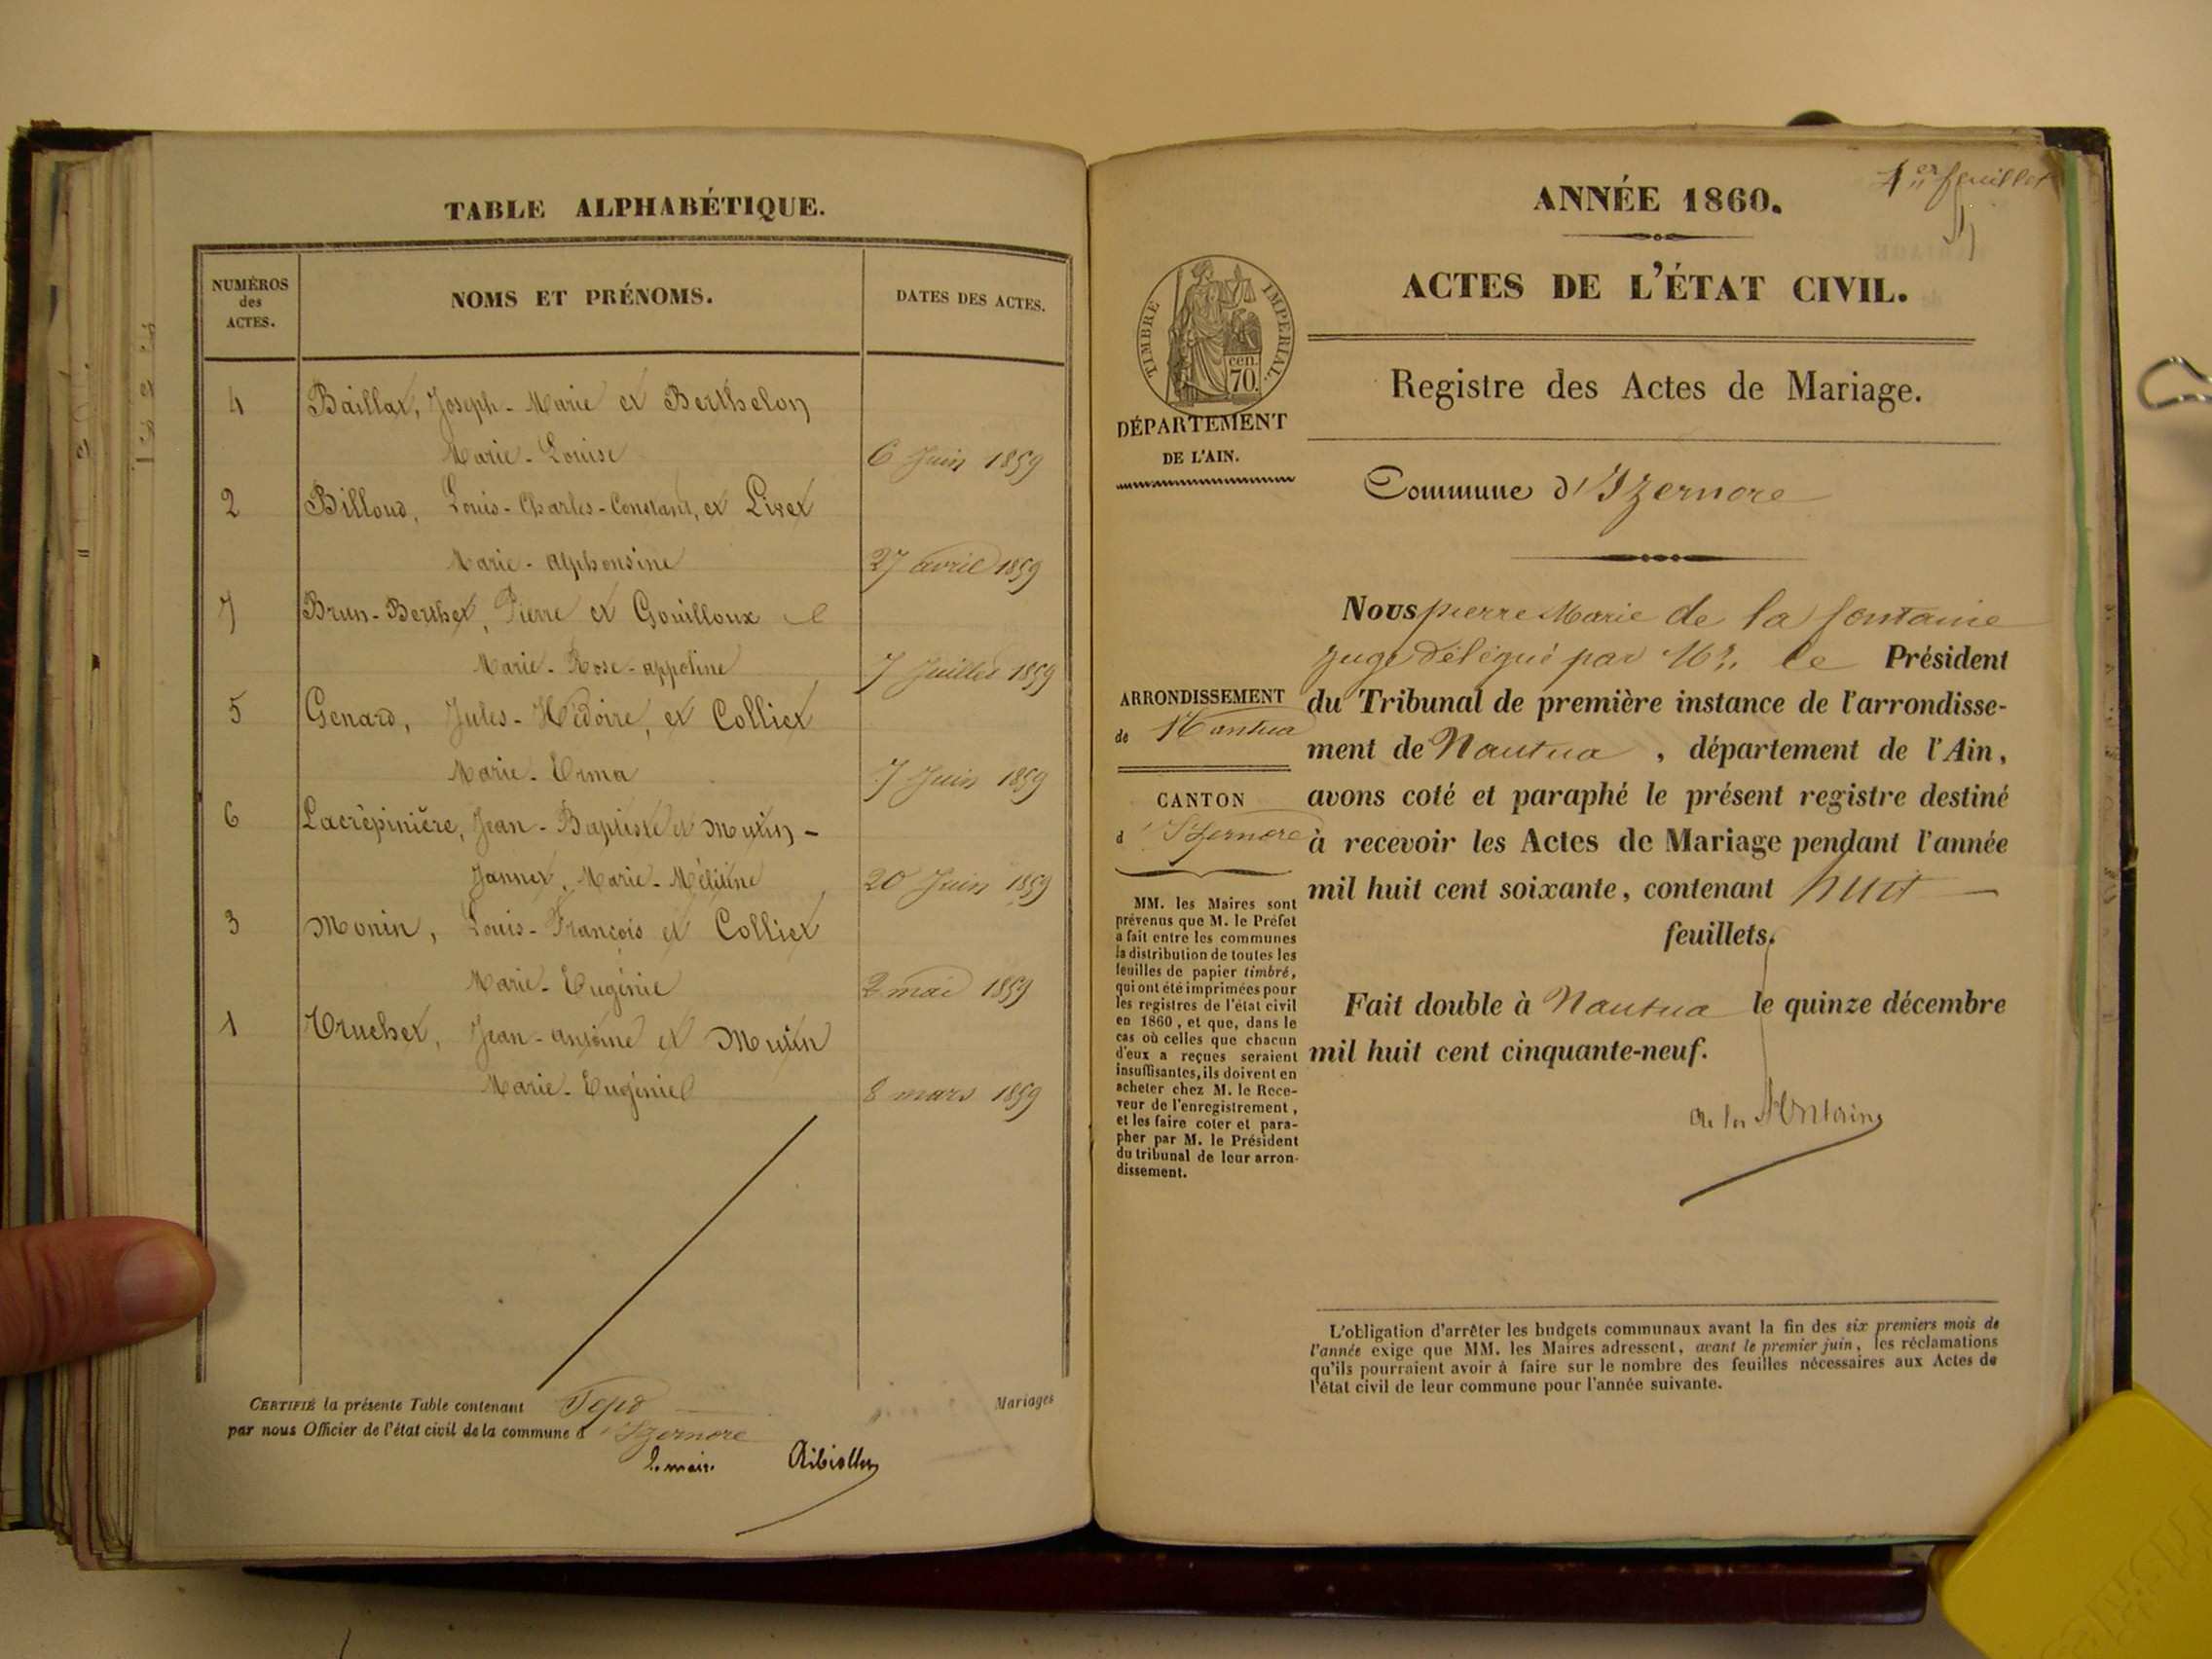 TABLE ALPHABÉTIQUE.
NUMÉROS
des
ACTES.
NOMS ET PRÉNOMS.
DATES DES ACTES.
4 Baillat, Joseph-Marie et Berthelon
Marie-Louise 6 Juin 1859
2 Billoud, Louis-Charles-Constant, et Livet
Marie-alphonsine 27 avril 1859
7 Brun-Berthet, Pierre et Gouilloux
Marie-Rose-appoline 7 Juillet 1859
5 Genard, Jules- et Colliet
Marie-Erma 7 Juin 1859
6 Lacrépinière, Jean-Baptiste et Mutin-
Jannet, Marie-Mélitine 20 Juin 1859
3 Monin, Louis-François et Colliet
Marie-Eugénie 2 mai 1859
1 Truchet, Jean-antoine et Mutin
Marie-Eugénie 8 mars 1859
CERTIFIÉ la présente Table contenant Sept Mariages
par nous Officier de l'état civil de la commune d'Izernore
Le maire
1er feuillet
ANNÉE 1860.
ACTES DE L'ÉTAT CIVIL.
TIMBRE IMPERIAL.
cen.
70.
DÉPARTEMENT
DE L'AIN.
Registre des Actes de Mariage.
Commune d'Izernore
Nous pierre Marie de la fontaine
juge délégué par Mr. le Président
du Tribunal de première instance de l'arrondisse-
ment de Nantua, département de l'Ain,
avons coté et paraphé le présent registre destiné
à recevoir les Actes de Mariage pendant l'année
mil huit cent soixante, contenant huit
feuillets.
Fait double à Nantua le quinze décembre
mil huit cent cinquante-neuf.
de la Fontaine
ARRONDISSEMENT
de Nantua
CANTON
d'Izernore
MM. les Maires sont
prévenus que M. le Préfet
a fait entre les communes
la distribution de toutes les
feuilles de papier timbré,
qui ont été imprimées pour
les registres de l'état civil
en 1860, et que, dans le
cas où celles que chacun
d'eux a reçues seraient
insuffisantes, ils doivent en
acheter chez M. le Rece-
veur de l'enregistrement,
et les faire coter et para-
pher par M. le Président
du tribunal de leur arron-
dissement.
L'obligation d'arrêter les budgets communaux avant la fin des six premiers mois de
l'année exige que MM. les Maires adressent, avant le premier juin, les réclamations
qu'ils pourraient avoir à faire sur le nombre des feuilles nécessaires aux Actes de
l'état civil de leur commune pour l'année suivante.